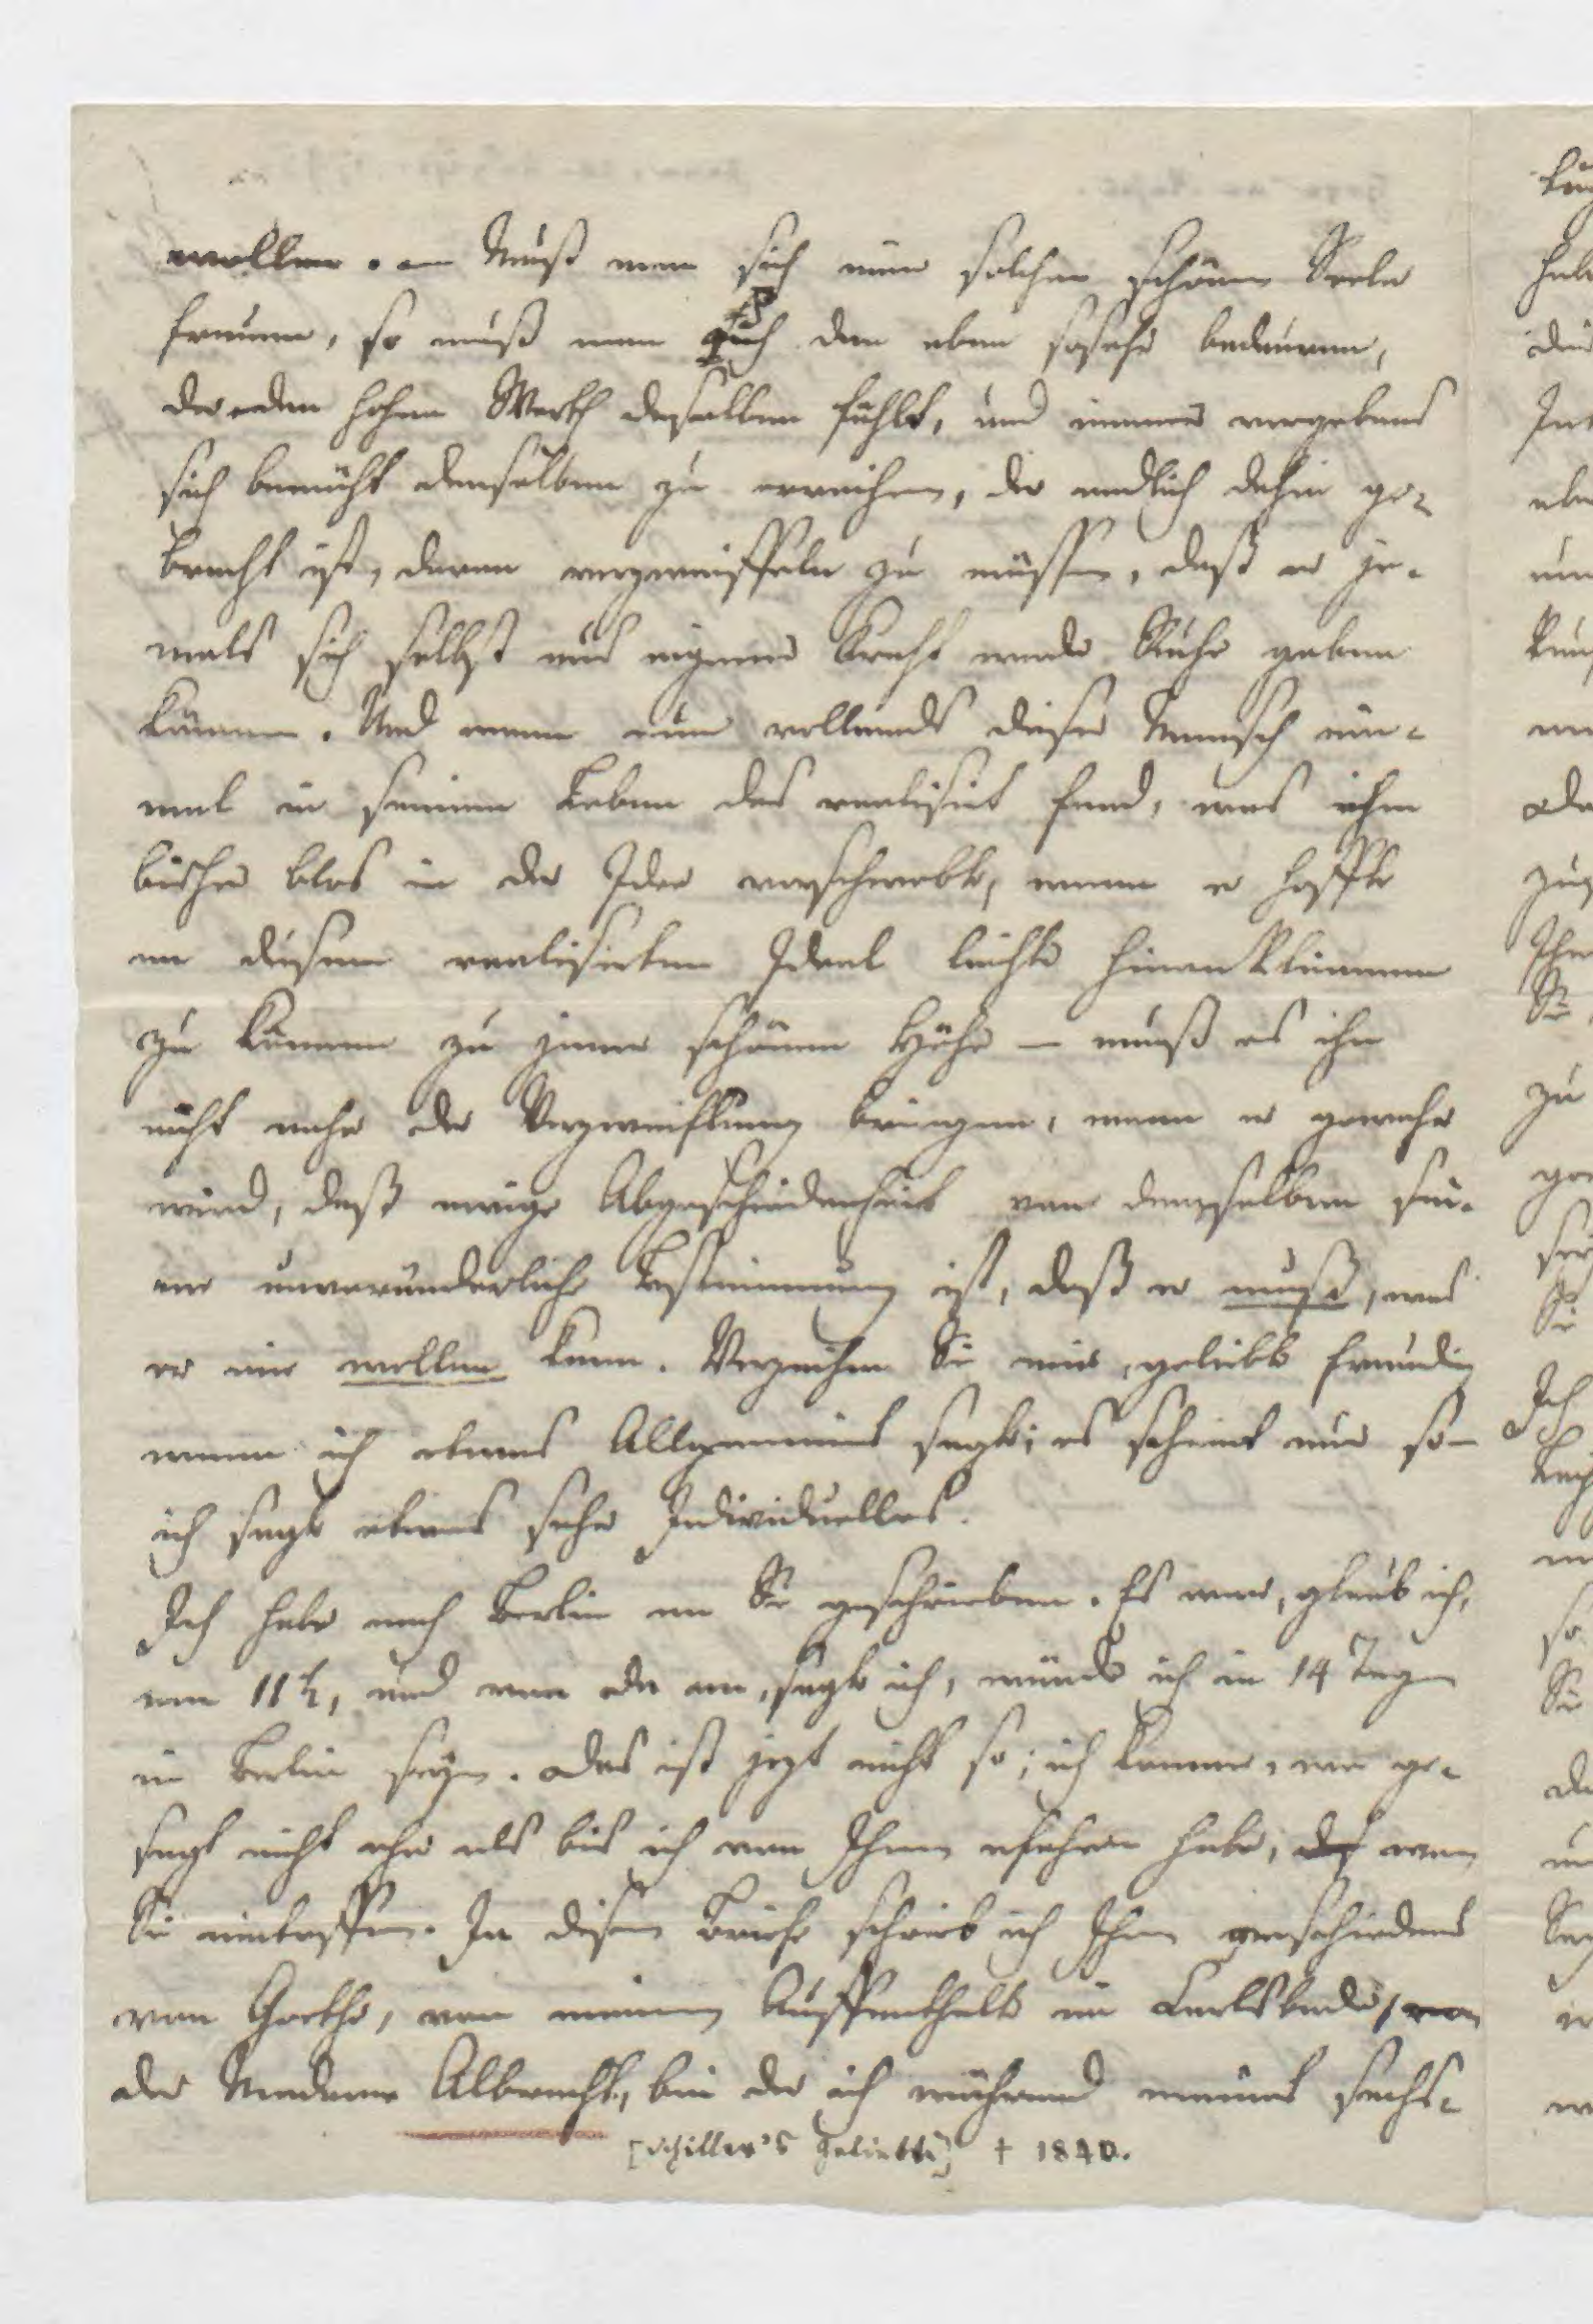 wollen. — Muß man sich nun solcher schönen Seele
freuen, so muß man auch den eben sosehr bedauren,
der den hohen Werth desselben fühlt, und immer vergebens
sich bemüht denselben zu erreichen, der endlich dahin ge-
bracht ist, daran verzweiffeln zu müssen, daß er je-
mals sich selbst aus eigener Kraft werde Ruhe geben
können. Und wenn nun vollends dieser Mensch ein-
mal in seinem Leben das realisirt fand, was ihm
bisher blos in der Idee vorschwebte, wenn er hoffte
an diesem realisirten Ideal leichte hinanklimmen
zu können zu jener schönen Höhe — muß es ihn
nicht nahe der Verzweiflung bringen, wenn er gewahr
wird, daß ewige Abgeschiedenheit von demselben sei-
ne unveränderliche Bestimmung ist, daß er muß, was
er nie wollen kann. Verzeihen Sie mir, geliebte Freundin
wenn ich etwas Allgemeines sagte; es scheint nur so —
ich sagte etwas sehr Individuelles.
Ich habe nach Berlin an Sie geschrieben. Es war, glaub ich,
am 11t, und von da an, sagte ich, würde ich in 14 Tagen
in Berlin seyn. Das ist jezt nicht so; ich komme, wie ge-
sagt nicht ehe als bis ich von Ihnen erfahren habe, wann
Sie eintreffen. In diesem Briefe schrieb ich Ihnen verschiedenes
von Goethe, von meinem Auffenthalte im Carlsbade, von
der Madame Albrecht, bei der ich während meines sechs-
[Schiller's Geliebte] † 1840.